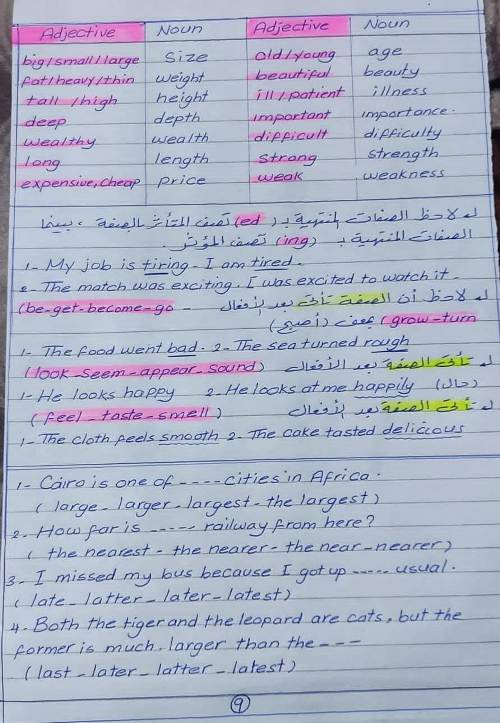 Adjective Noun Adjective Noun
big/small/large size old/young age
fat/heavy/thin weight beautiful beauty
tall/high height ill/patient illness
deep depth important importance.
wealthy wealth difficult difficulty
long length strong strength
expensive, cheap price weak weakness
لاحظ الصفات المنتهية بـ (ed) تصف المتأثر بالصفة ، بينما
الصفات المنتهية بـ (ing) تصف المؤثر.
1- My job is tiring - I am tired.
2- The match was exciting. I was excited to watch it.
لاحظ أن الصفة تأتى بعد الأفعال - (be-get-become-go
grow-turn) بمعنى (أصبح)
1- The food went bad. 2- The sea turned rough
تأتى الصفة بعد الأفعال (look-seem-appear-sound)
1- He looks happy 2- He looks at me happily (حال)
تأتى الصفة بعد الأفعال (feel-taste-smell)
1- The cloth feels smooth 2- The cake tasted delicious
1- Cairo is one of ---- cities in Africa.
( large - larger - largest - the largest )
2- How far is ----- railway from here?
( the nearest - the nearer - the near - nearer )
3- I missed my bus because I got up ----- usual.
( late - latter - later - latest )
4- Both the tiger and the leopard are cats, but the
former is much. larger than the ---
( last - later - latter - latest )
9